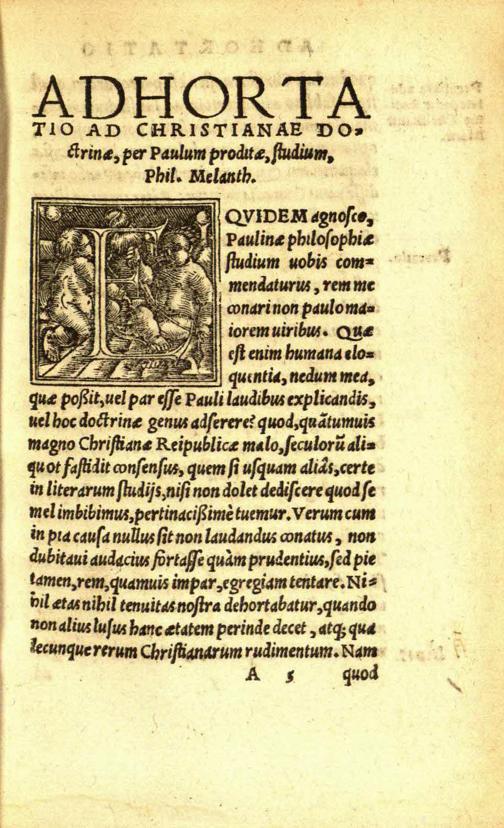 ADHORTA
TIO AD CHRISTIANAE DO⸗
ctrinæ, per Paulum proditæ, studium,
Phil. Melanth.
EQVIDEM agnosco,
Paulinæ philosophiæ
studium uobis com⸗
mendaturus, rem me
conari non paulo ma⸗
iorem uiribus. Quæ
est enim humana elo⸗
quentia, nedum mea,
quæ poßit, uel par esse Pauli laudibus explicandis,
uel hoc doctrinæ genus adserere? quod, quātumuis
magno Christianæ Reipublicæ malo, seculorū ali⸗
quot fastidit consensus, quem si usquam aliâs, certe
in literarum studijs, nisi non dolet dediscere quod se
mel imbibimus, pertinacißimè tuemur. Verum cum
in pia causa nullus sit non laudandus conatus, non
dubitaui audacius fortasse quàm prudentius, sed pie
tamen, rem, quamuis impar, egregiam tentare. Ni⸗
hil ætas nihil tenuitas nostra dehortabatur, quando
non alius lusus hanc ætatem perinde decet, atq; qua
lecunque rerum Christianarum rudimentum. Nam
A 5 quod